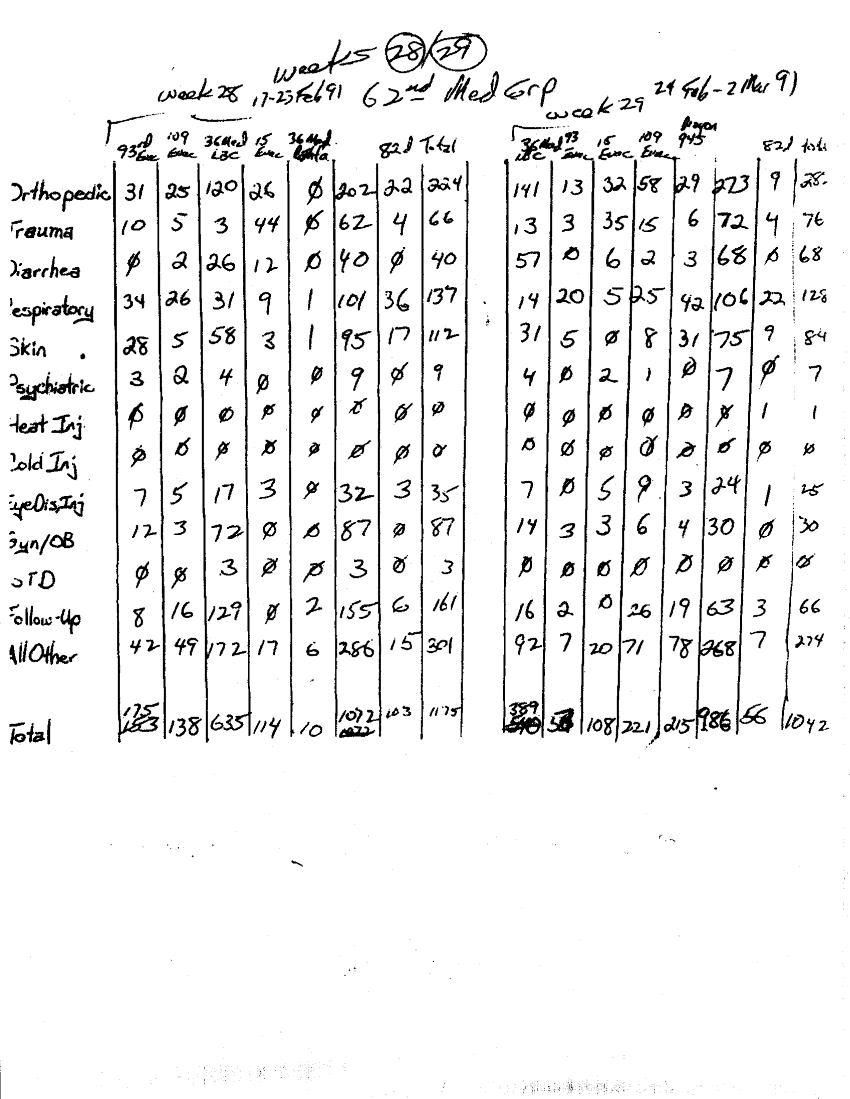 weeks 28/29
week 28 17-23 Feb 91 62nd Med Grp week 29 24 Feb - 2 Mar 91
93rd Evac 109 Evac 36 Med LBC 15 Evac 36 Med 82d Total 36 Med LBC 93 Evac 15 Evac 109 Evac 945 82d tot
Orthopedic 31 25 120 26 Ø 202 22 224 141 13 32 58 29 273 9 28
Trauma 10 5 3 44 Ø 62 4 66 13 3 35 15 6 72 4 76
Diarrhea Ø 2 26 12 Ø 40 Ø 40 57 Ø 6 2 3 68 Ø 68
espiratory 34 26 31 9 1 101 36 137 14 20 5 25 42 106 22 128
Skin 28 5 58 3 1 95 17 112 31 5 Ø 8 31 75 9 84
Psychiatric 3 2 4 Ø Ø 9 Ø 9 4 Ø 2 1 Ø 7 Ø 7
Heat Inj Ø Ø Ø Ø Ø Ø Ø Ø Ø Ø Ø Ø Ø Ø 1 1
Cold Inj Ø Ø Ø Ø Ø Ø Ø Ø Ø Ø Ø Ø Ø Ø Ø Ø
EyeDis,Inj 7 5 17 3 Ø 32 3 35 7 Ø 5 9 3 24 1 25
Gyn/OB 12 3 72 Ø Ø 87 Ø 87 14 3 3 6 4 30 Ø 30
STD Ø Ø 3 Ø Ø 3 Ø 3 Ø Ø Ø Ø Ø Ø Ø Ø
Follow-Up 8 16 129 Ø 2 155 6 161 16 2 Ø 26 19 63 3 66
All Other 42 49 172 17 6 286 15 301 92 7 20 71 78 268 7 274
Total 175 138 635 114 10 1072 103 1175 389 108 221 215 986 56 1042